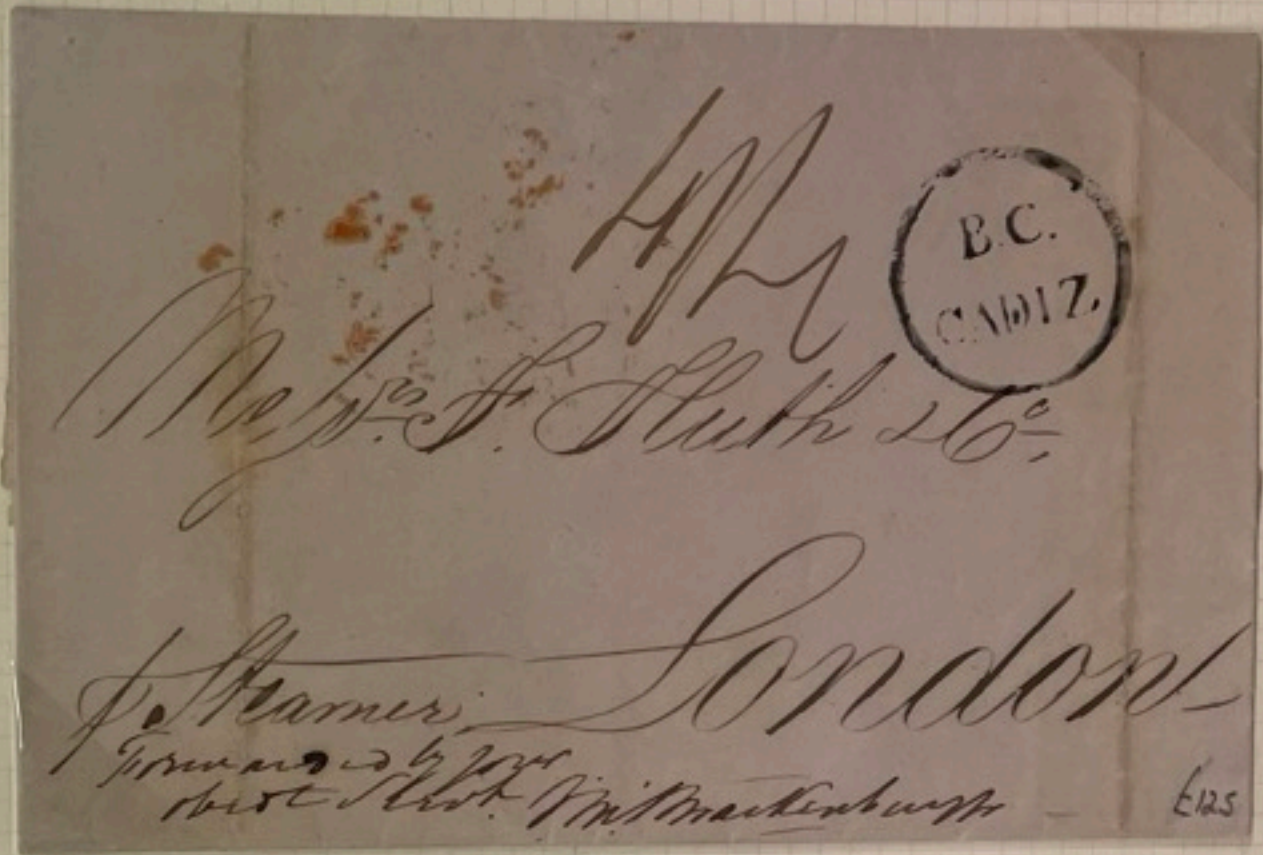 4/2
B.C.
CADIZ
Messrs. F. Huth & Co.
London
p. Steamer
Forwarded by your
obedt Servt. Brackenbury
£125